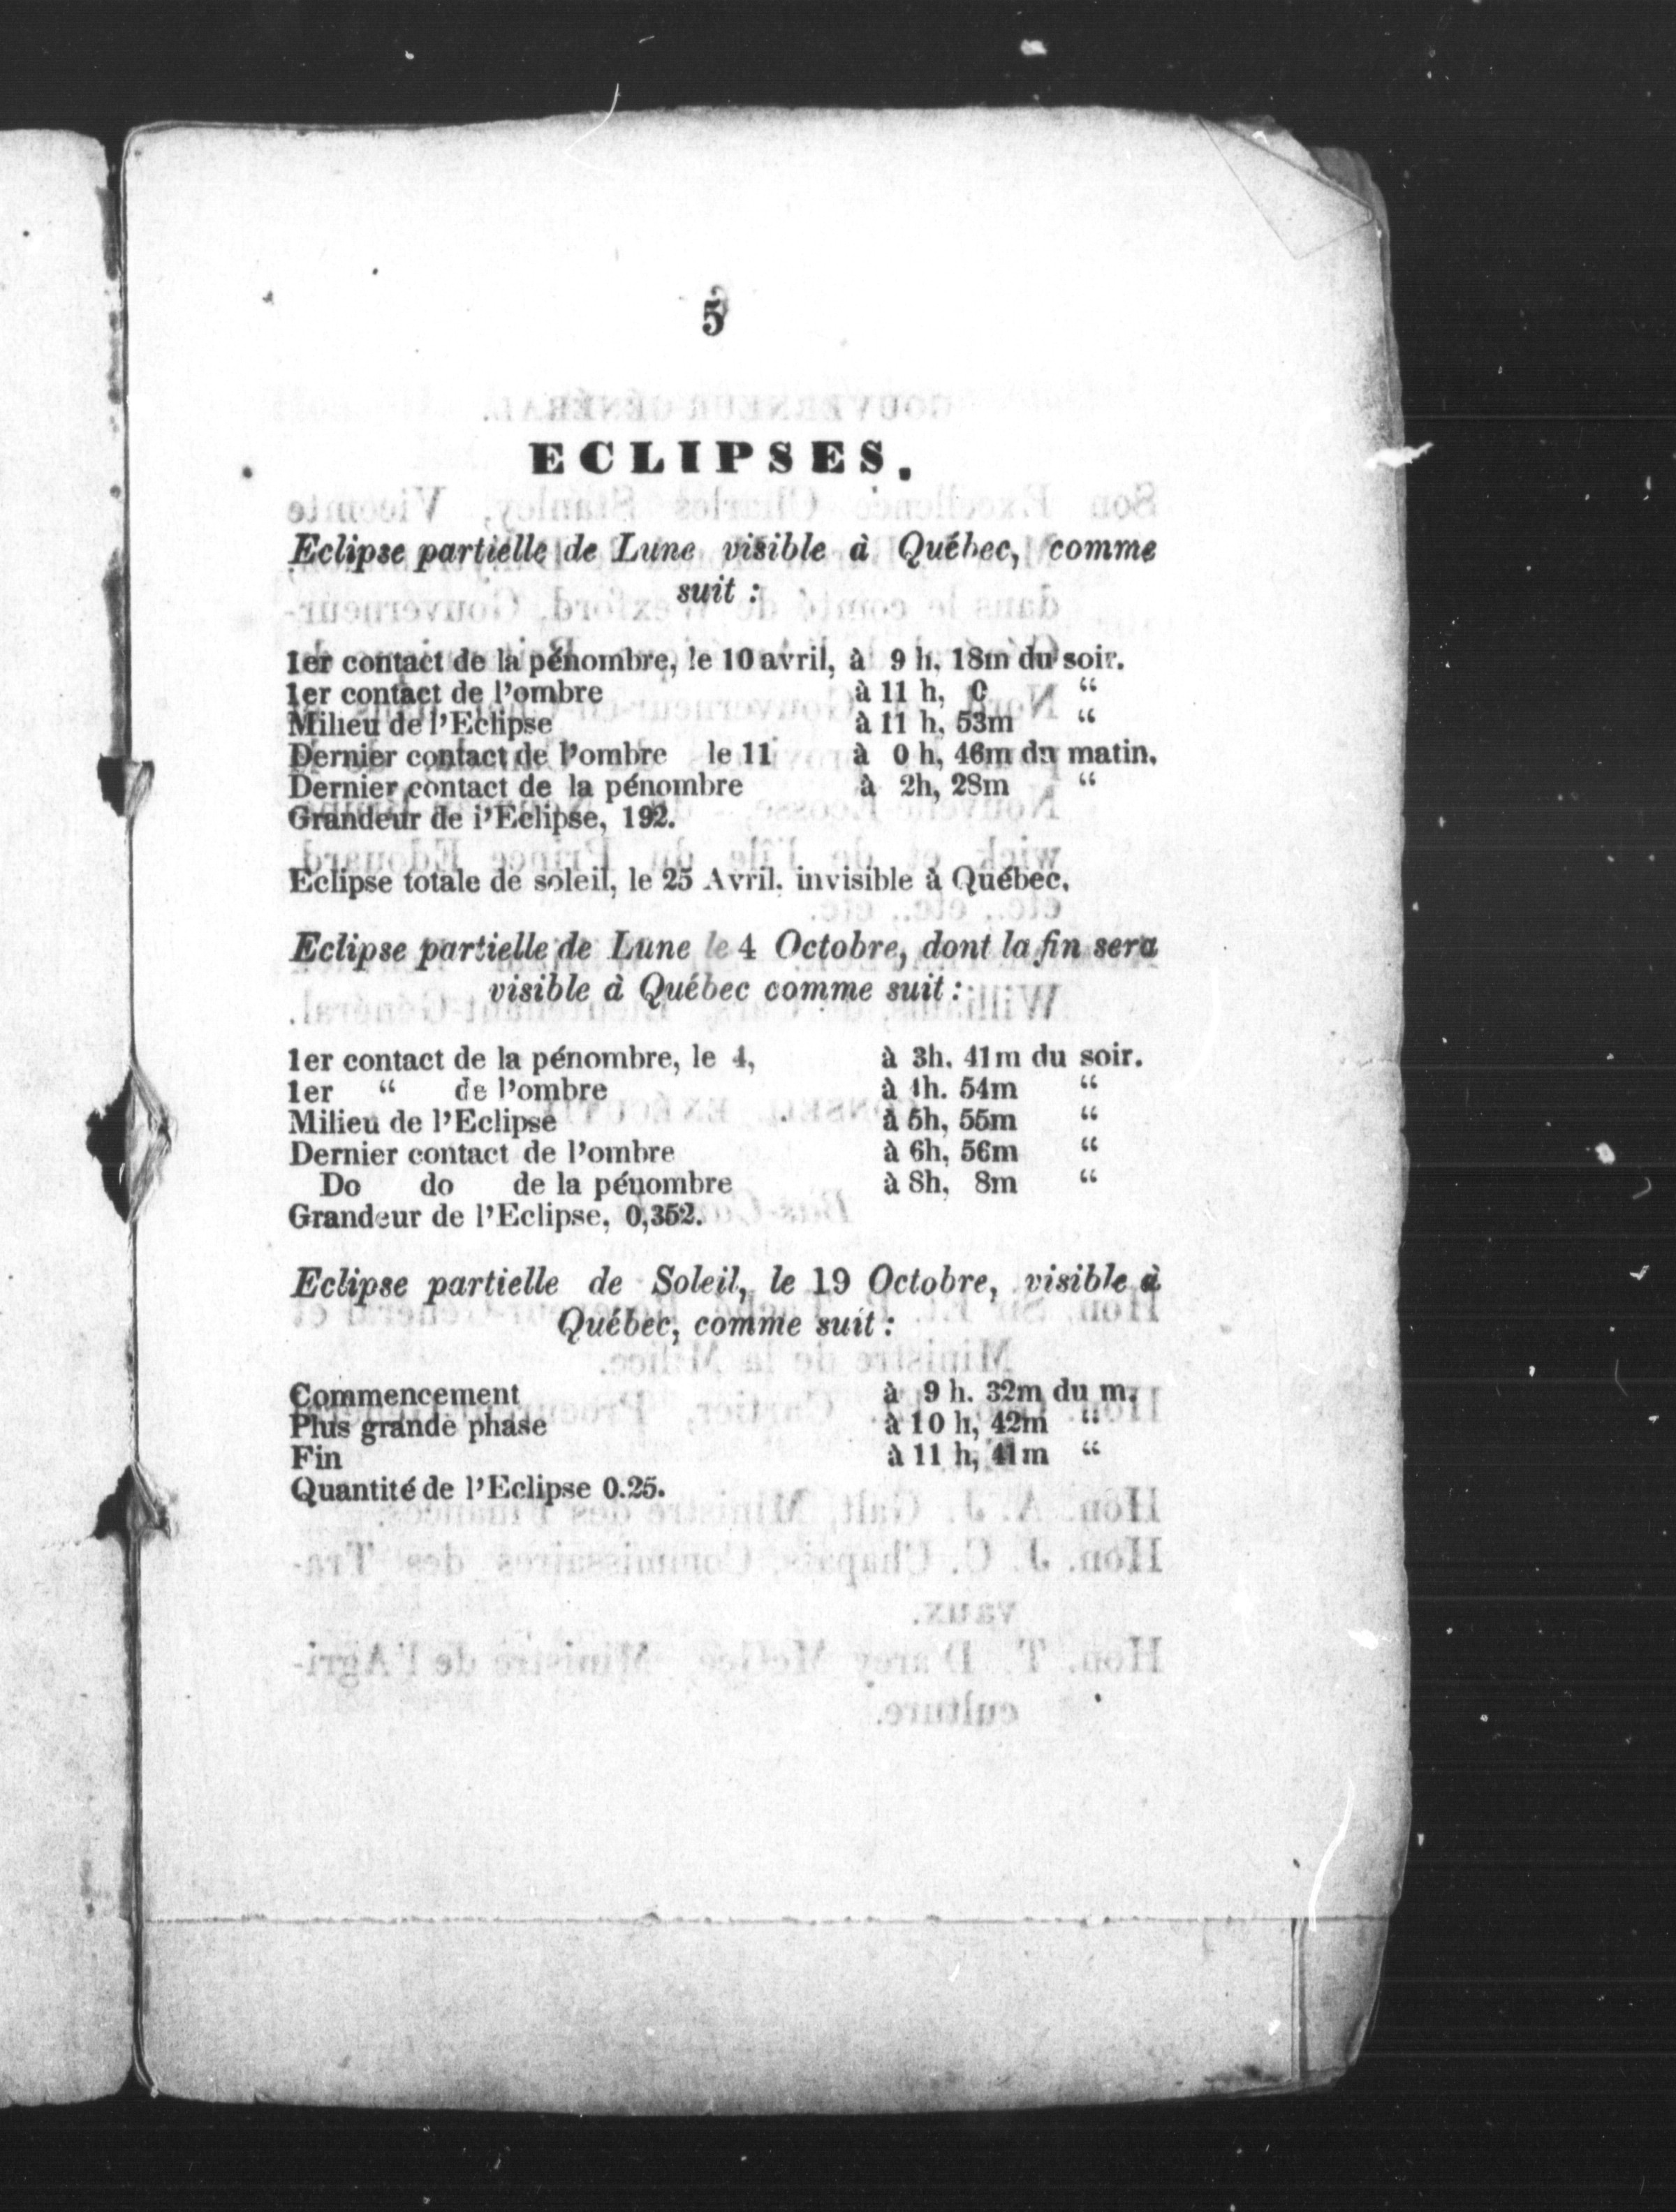 5
ECLIPSES.
Eclipse partielle de Lune visible à Québec, comme
suit :
1er contact de la pénombre, le 10 avril, à 9 h, 18m du soir.
1er contact de l'ombre à 11 h, 0 “
Milieu de l'Eclipse à 11 h, 53m “
Dernier contact de l'ombre le 11 à 0 h, 46m du matin.
Dernier contact de la pénombre à 2h, 28m “
Grandeur de l'Eclipse, 192.
Eclipse totale de soleil, le 25 Avril. invisible à Québec.
Eclipse partielle de Lune le 4 Octobre, dont la fin sera
visible à Québec comme suit :
1er contact de la pénombre, le 4, à 3h. 41m du soir.
1er “ de l'ombre à 4h. 54m “
Milieu de l'Eclipse à 5h, 55m “
Dernier contact de l'ombre à 6h, 56m “
Do do de la pénombre à 8h, 8m “
Grandeur de l'Eclipse, 0,352.
Eclipse partielle de Soleil, le 19 Octobre, visible à
Québec, comme suit :
Commencement à 9 h. 32m du m.
Plus grande phase à 10 h, 42m “
Fin à 11 h, 41m “
Quantité de l'Eclipse 0.25.